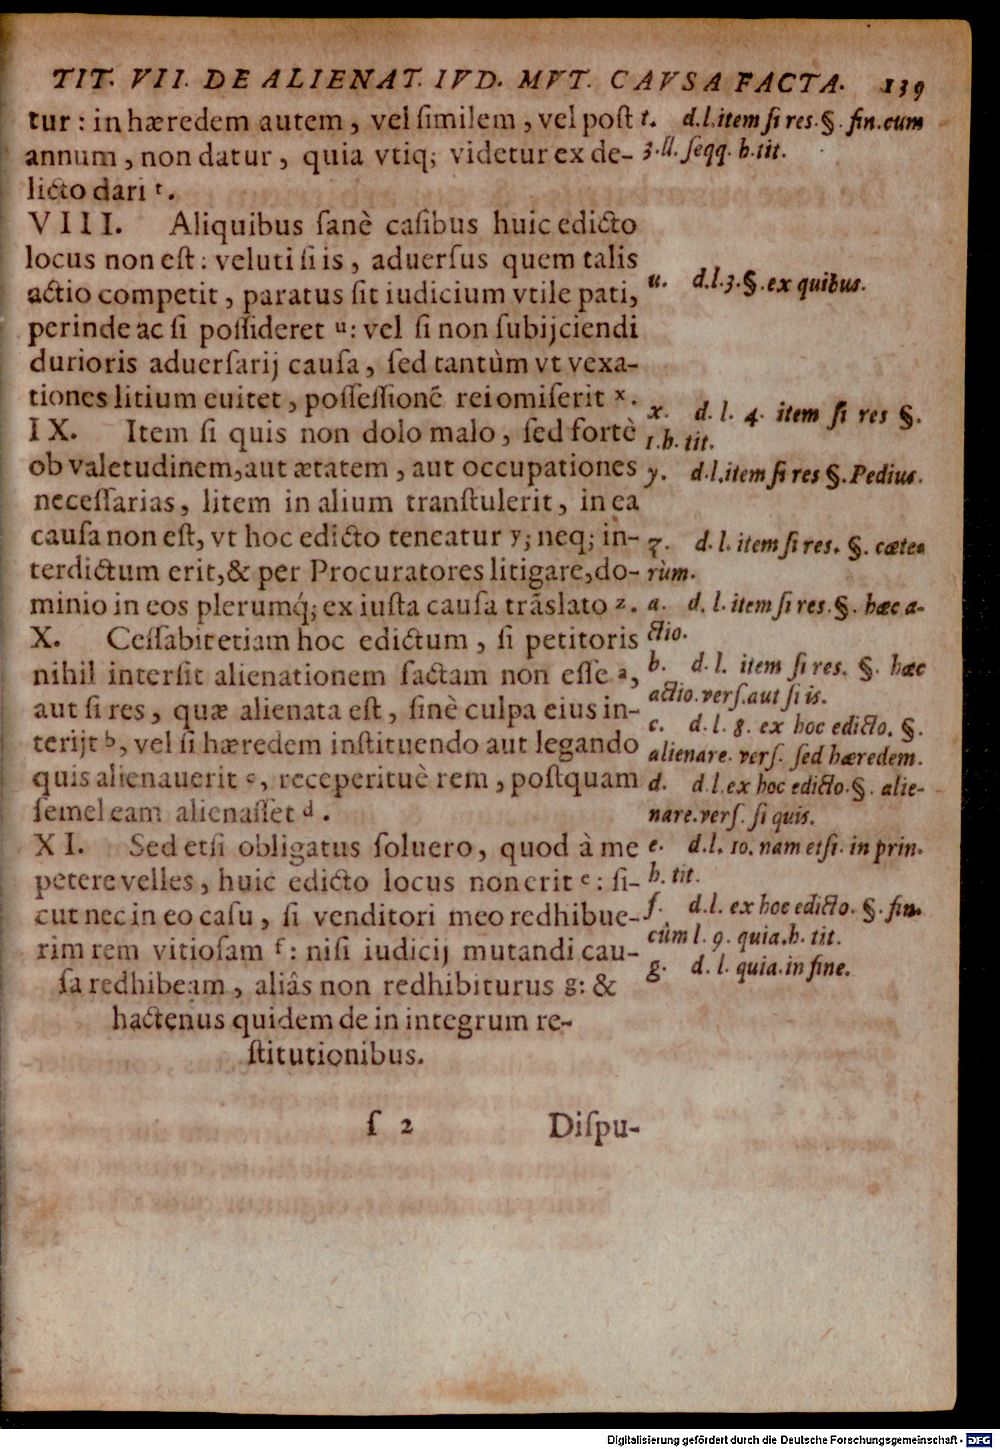 TIT. VII. DE ALIENAT. IVD. MVT. CAVSA FACTA. 139
tur : in hæredem autem , vel ſimilem , vel poſt
annum , non datur , quia vtiq; videtur ex de-
licto dari t.
VIII. Aliquibus ſanè caſibus huic edicto
locus non eſt : veluti ſi is , aduerſus quem talis
actio competit , paratus ſit iudicium vtile pati,
perinde ac ſi poſſideret u: vel ſi non ſubijciendi
durioris aduerſarij cauſa , ſed tantùm vt vexa-
tiones litium euitet , poſſeſſionẽ rei omiſerit x.
IX. Item ſi quis non dolo malo , ſed fortè
ob valetudinem,aut ætatem , aut occupationes
neceſſarias, litem in alium tranſtulerit, in ea
cauſa non eſt, vt hoc edicto teneatur y; neq; in-
terdictum erit,& per Procuratores litigare,do-
minio in eos plerumq́; ex iuſta cauſa trãslato z.
X. Ceſſabit etiam hoc edictum , ſi petitoris
nihil interſit alienationem factam non eſſe a,
aut ſi res, quæ alienata eſt, ſinè culpa eius in-
terijt b, vel ſi hæredem inſtituendo aut legando
quis alienauerit c, receperituè rem, poſtquam
ſemel eam alienaſſet d.
XI. Sed etſi obligatus ſoluero, quod à me
petere velles, huic edicto locus non erit e: ſi-
cut nec in eo caſu, ſi venditori meo redhibue-
rim rem vitioſam f: niſi iudicij mutandi cau-
ſa redhibeam, aliâs non redhibiturus g: &
hactenus quidem de in integrum re-
ſtitutionibus.
t. d.l.item ſi res.§. fin.cum
3.ll. ſeqq. h.tit.
u. d.l.3.§.ex quibus.
x. d. l. 4. item ſi res §.
1.h. tit.
y. d.l.item ſi res §.Pedius.
z. d. l. item ſi res. §. cæte-
rùm.
a. d. l. item ſi res.§. hæc a-
ctio.
b. d. l. item ſi res. §. hæc
actio.verſ.aut ſi is.
c. d. l. 8. ex hoc edicto. §.
alienare. verſ. ſed hæredem.
d. d.l.ex hoc edicto.§. alie-
nare.verſ. ſi quis.
e. d.l. 10. nam etſi. in prin.
h. tit.
f. d.l. ex hoc edicto. §.fin.
cûm l. 9. quia.h. tit.
g. d. l. quia.in fine.
ſ 2 Diſpu-
Digitalisierung gefördert durch die Deutsche Forschungsgemeinschaft - DFG